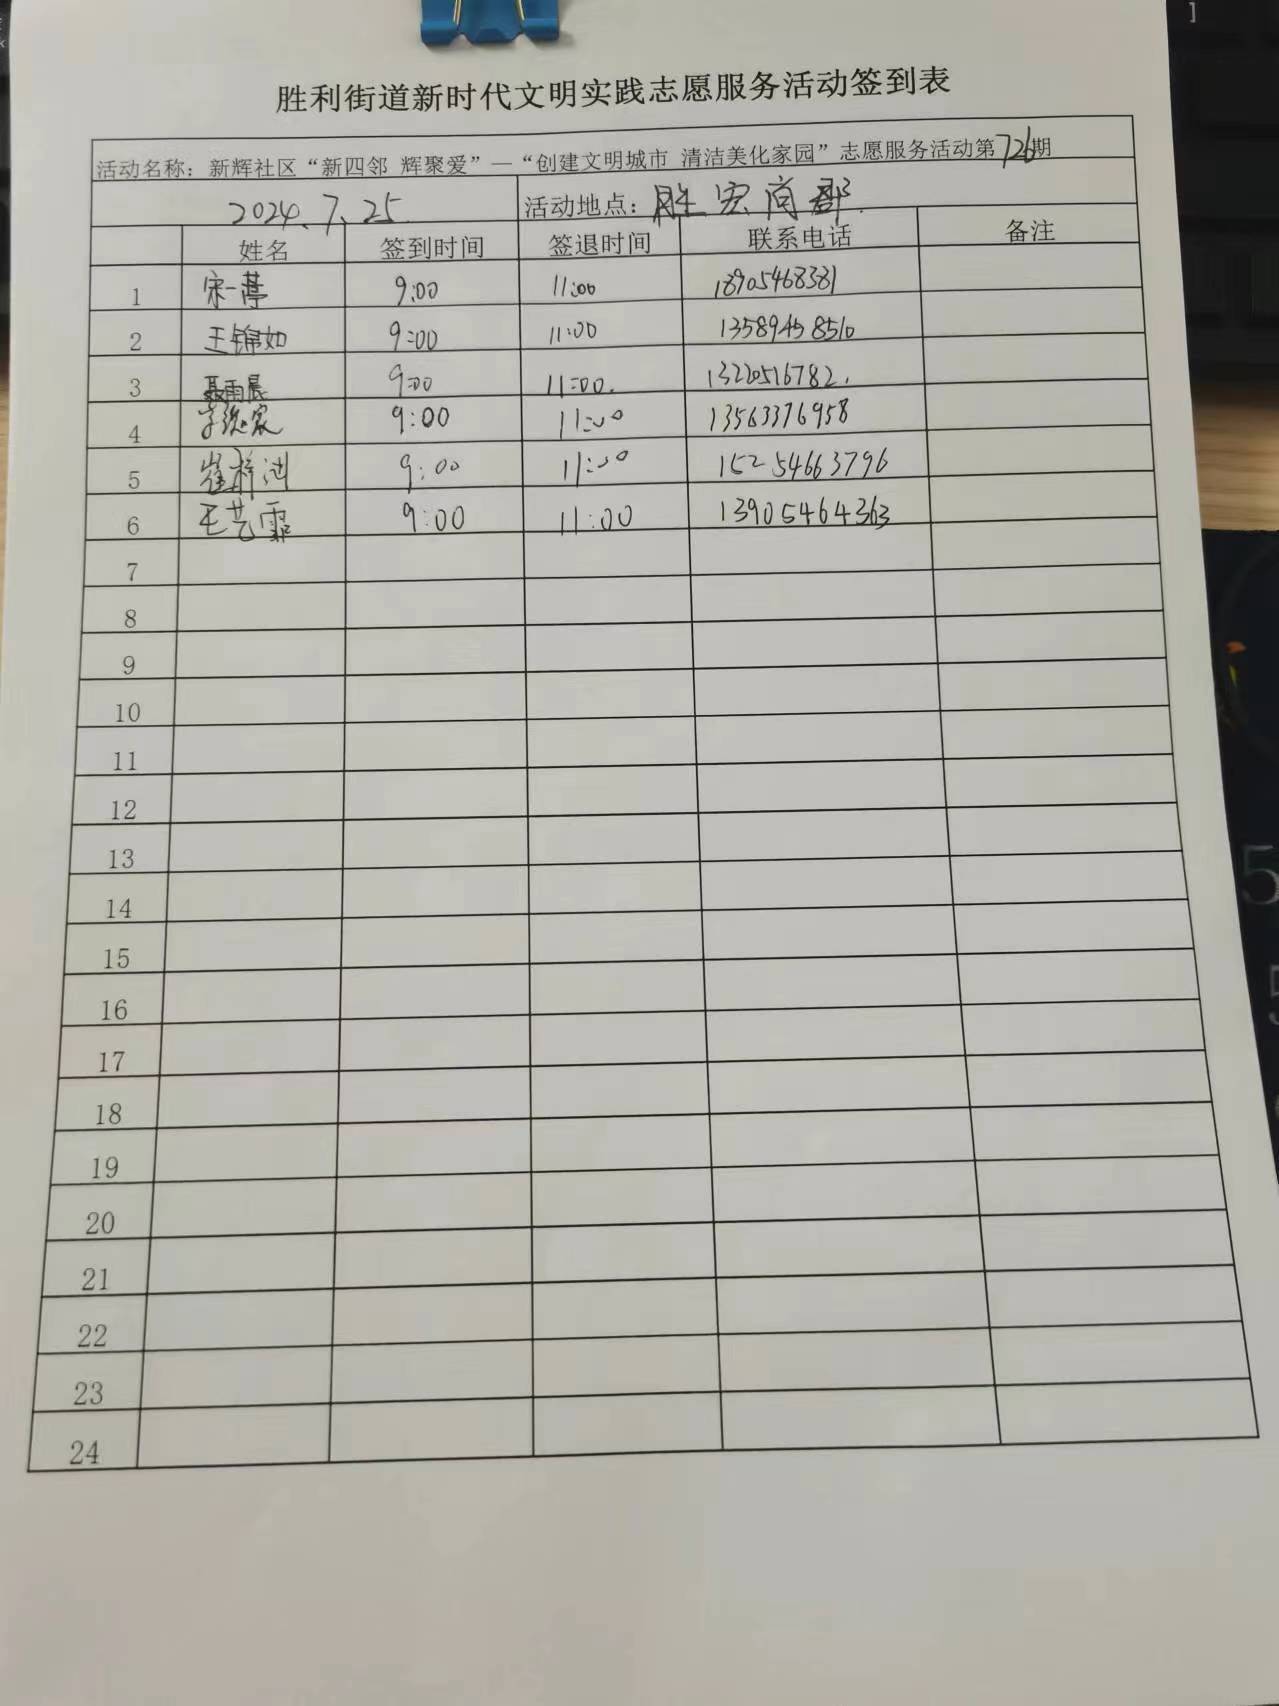 胜利街道新时代文明实践志愿服务活动签到表
活动名称：新辉社区“新四邻 辉聚爱”—“创建文明城市 清洁美化家园”志愿服务活动第726期
2024.7.25 活动地点：胜宏商都
姓名 签到时间 签退时间 联系电话 备注
1 宋一葶 9:00 11:00 18905468381
2 王锦如 9:00 11:00 13589458510
3 聂雨晨 9:00 11:00. 13220516782.
4 9:00 11:00 13563376958
5 崔梓涵 9:00 11:00 15254663796
6 王艺霏 9:00 11:00 13905464363
7
8
9
10
11
12
13
14
15
16
17
18
19
20
21
22
23
24